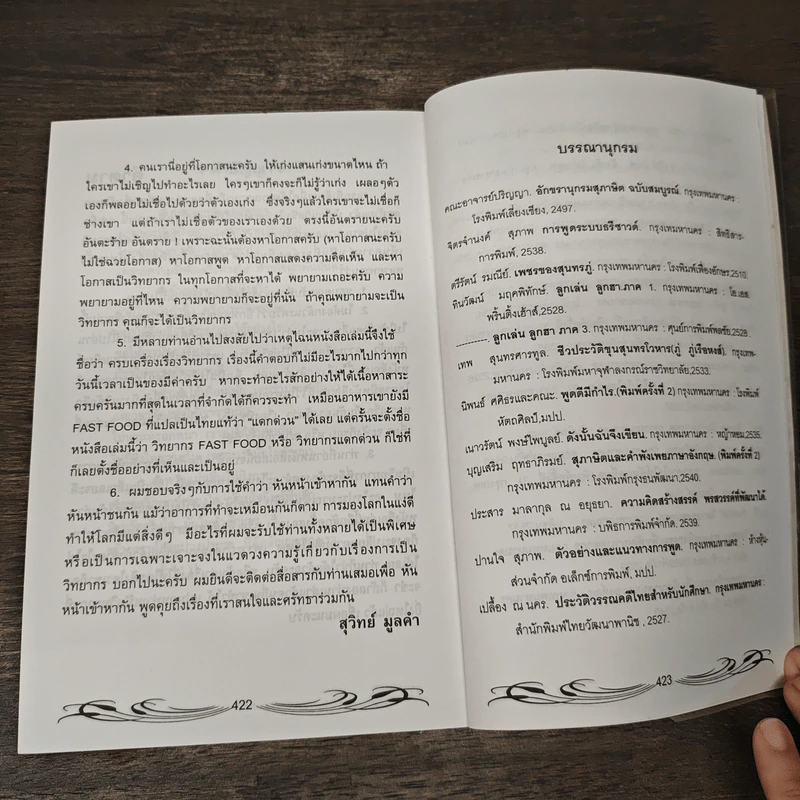 4. คนเรานี่อยู่ที่โอกาสนะครับ ให้เก่งแสนเก่งขนาดไหน ถ้า
ใครเขาไม่เชิญไปทำอะไรเลย ใครๆเขาก็คงจะก็ไม่รู้ว่าเก่ง เผลอๆตัว
เองก็พลอยไม่เชื่อไปด้วยว่าตัวเองเก่ง ซึ่งจริงๆแล้วใครเขาจะไม่เชื่อก็
ช่างเขา แต่ถ้าเราไม่เชื่อตัวของเราเองด้วย ตรงนี้อันตรายนะครับ
อันตะร้าย อันตราย ! เพราะฉะนั้นต้องหาโอกาสครับ (หาโอกาสนะครับ
ไม่ใช่ฉวยโอกาส) หาโอกาสพูด หาโอกาสแสดงความคิดเห็น และหา
โอกาสเป็นวิทยากร ในทุกโอกาสที่จะหาได้ พยายามเถอะครับ ความ
พยายามอยู่ที่ไหน ความพยายามก็จะอยู่ที่นั่น ถ้าคุณพยายามจะเป็น
วิทยากร คุณก็จะได้เป็นวิทยากร
5. มีหลายท่านอ่านไปสงสัยไปว่าเหตุไฉนหนังสือเล่มนี้จึงใช้
ชื่อว่า ครบเครื่องเรื่องวิทยากร เรื่องนี้คำตอบก็ไม่มีอะไรมากไปกว่าทุก
วันนี้เวลาเป็นของมีค่าครับ หากจะทำอะไรสักอย่างให้ได้เนื้อหาสาระ
ครบครันมากที่สุดในเวลาที่จำกัดได้ก็ควรจะทำ เหมือนอาหารเขายังมี
FAST FOOD ที่แปลเป็นไทยแท้ว่า "แดกด่วน" ได้เลย แต่ครั้นจะตั้งชื่อ
หนังสือเล่มนี้ว่า วิทยากร FAST FOOD หรือ วิทยากรแดกด่วน ก็ใช่ที่
ก็เลยตั้งชื่ออย่างที่เห็นและเป็นอยู่
6. ผมชอบจริงๆกับการใช้คำว่า หันหน้าเข้าหากัน แทนคำว่า
หันหน้าชนกัน แม้ว่าอาการที่ทำจะเหมือนกันก็ตาม การมองโลกในแง่ดี
ทำให้โลกมีแต่สิ่งดีๆ มีอะไรที่ผมจะรับใช้ท่านทั้งหลายได้เป็นพิเศษ
หรือเป็นการเฉพาะเจาะจงในแวดวงความรู้เกี่ยวกับเรื่องการเป็น
วิทยากร บอกไปนะครับ ผมยินดีจะติดต่อสื่อสารกับท่านเสมอเพื่อ หัน
หน้าเข้าหากัน พูดคุยถึงเรื่องที่เราสนใจและศรัทธาร่วมกัน
สุวิทย์ มูลคำ
422
บรรณานุกรม
คณะอาจารย์ปริญญา. อักขรานุกรมสุภาษิต ฉบับสมบูรณ์. กรุงเทพมหานคร :
โรงพิมพ์เลี่ยงเชียง, 2497.
จิตรจำนงค์ สุภาพ การพูดระบบธรีซาวด์. กรุงเทพมหานคร : สิทธิสาร-
การพิมพ์, 2538.
ตรีรัตน์ รมณีย์. เพชรของสุนทรภู่. กรุงเทพมหานคร : โรงพิมพ์เฟื่องอักษร,2510.
ทินวัฒน์ มฤคพิทักษ์. ลูกเล่น ลูกฮา.ภาค 1. กรุงเทพมหานคร : โอ.เอส.
พริ้นติ้งเฮ้าส์,2528.
---------. ลูกเล่น ลูกฮา ภาค 3. กรุงเทพมหานคร : ศูนย์การพิมพ์พลชัย,2528.
เทพ สุนทรศารทูล. ชีวประวัติขุนสุนทรโวหาร(ภู่ ภู่เรือหงส์). กรุงเทพ-
มหานคร : โรงพิมพ์มหาจุฬาลงกรณ์ราชวิทยาลัย.2533.
นิพนธ์ ศศิธรและคณะ. พูดดีมีกำไร.(พิมพ์ครั้งที่ 2) กรุงเทพมหานคร : โรงพิมพ์
หัตถศิลป์,มปป.
เนาวรัตน์ พงษ์ไพบูลย์. ดังนั้นฉันจึงเขียน. กรุงเทพมหานคร : หญ้าหอม,2535.
บุญเสริม ฤทธาภิรมย์. สุภาษิตและคำพังเพยภาษาอังกฤษ. (พิมพ์ครั้งที่ 2)
กรุงเทพมหานคร : โรงพิมพ์กรุงธนพัฒนา,2540.
ประสาร มาลากุล ณ อยุธยา. ความคิดสร้างสรรค์ พรสวรรค์ที่พัฒนาได้.
กรุงเทพมหานคร : บพิธการพิมพ์จำกัด. 2539.
ปานใจ สุภาพ. ตัวอย่างและแนวทางการพูด. กรุงเทพมหานคร : ห้างหุ้น-
ส่วนจำกัด อเล็กซ์การพิมพ์, มปป.
เปลื้อง ณ นคร. ประวัติวรรณคดีไทยสำหรับนักศึกษา. กรุงเทพมหานคร :
สำนักพิมพ์ไทยวัฒนาพานิช , 2527.
423